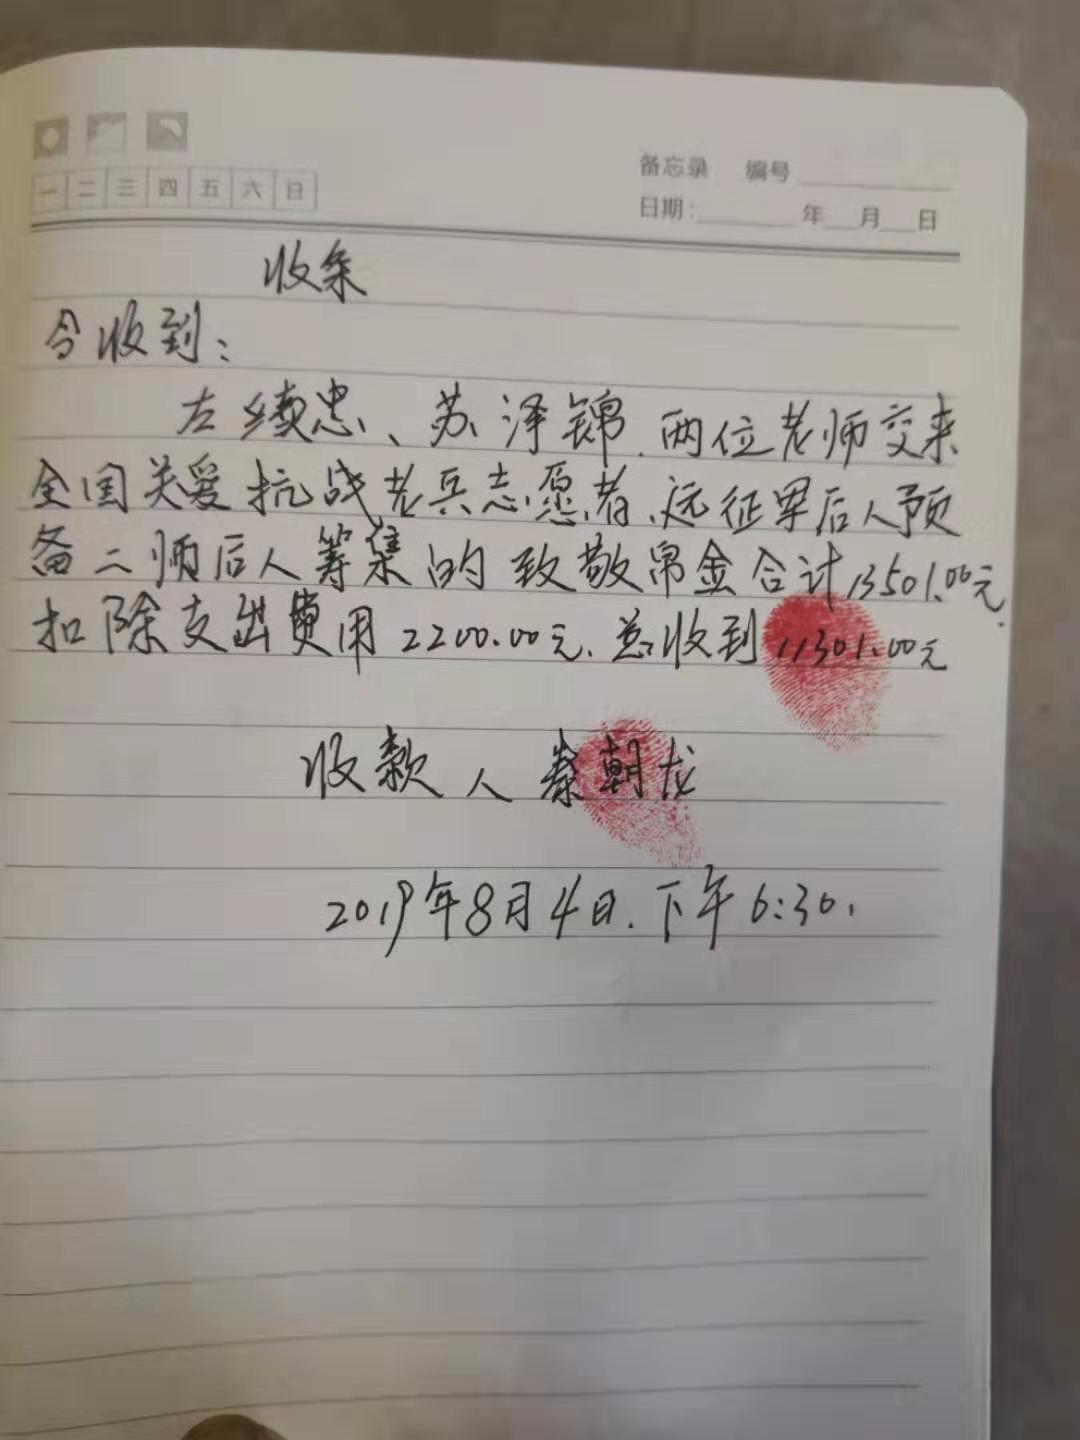 备忘录 编号
一 二 三 四 五 六 日
日期: 年 月 日
收条
今收到:
左续忠、苏泽锦.两位老师交来
全国关爱抗战老兵志愿者、远征军后人预
备二师后人筹集的致敬帛金合计13501.00元.
扣除支出费用2200.00元.总收到11301.00元
收款人 秦朝龙
2019年8月4日.下午6:30.